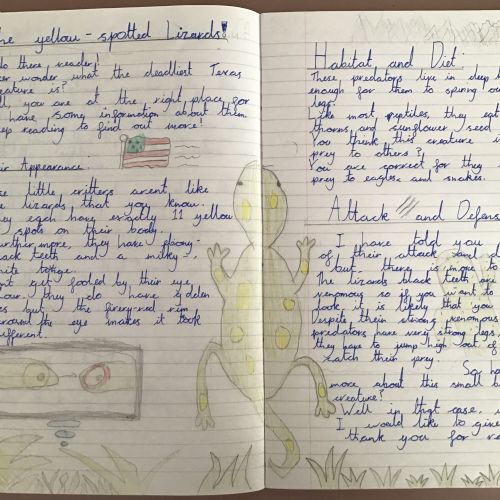 he yellow-spotted Lizards!
do there, reader!
er wonder what the deadliest Texas
eature is?
ll, you are at the right place, for
have some information about them.
ep reading to find out more!
eir Appearance:
se little critters arent like
e lizards that you know.
ey each have exactly 11 yellow
y spots on their body.
urther more, they have ebony-
lack teeth and a milky,
hite
ont get fooled by their eye
lour. They do have golden
es but the firery-red rim
around the eye makes it look
ifferent.
Habitat and Diet:
These predators live in deep h
enough for them to spring ou
legs.
Like most reptiles, they eat
thorns and sunflower seed
You think this creature i
prey to others?
You are correct for they
prey to eagles and snakes.
Attack and Defens
I have told you
of their attack and d
but there is more to
The lizards black teeth are
venomous so if you want to
look, is likely that you
despite their strong, venomous
predators have very strong legs,
they have to jump high out of
catch their prey.
So, ha
more about this small b
creature?
Well in that case,
I would like to give
thank you for re